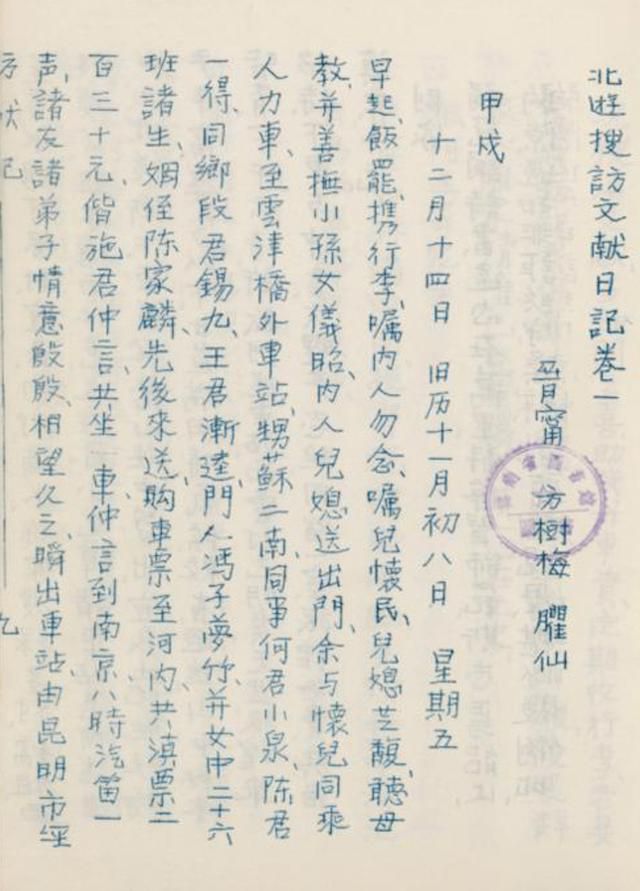 北遊搜訪文献日記卷一
晋甯 方樹梅 臞仙
甲戌
十二月十四日 旧历十一月初八日 星期五
早起、飯罷、携行李、嘱内人勿念、嘱兒懷民、兒媳芝馥、聽母
教、并善撫小孫女儀昭、内人兒媳送出門、余与懷兒同乘
人力車、至雲津橋外車站、甥蘇二南、同事何君小泉、陈君
一得、同鄉段君錫九、王君漸逵、門人馮子夢竹、并女中二十六
班諸生、姻侄陈家麟、先後來送、购車票至河内、共滇票二
百三十元、偕施君仲言、共坐一車、仲言到南京、八時汽笛一
声、諸友諸弟子情意殷殷、相望久之、瞬出車站、由昆明市經